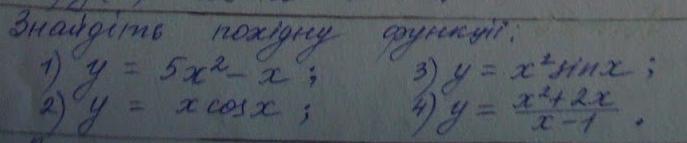 Знайдіть похідну функції:
1) y = 5x² - x ; 3) y = x² sinx ;
2) y = x cosx ; 4) y = (x² + 2x)/(x - 1) .